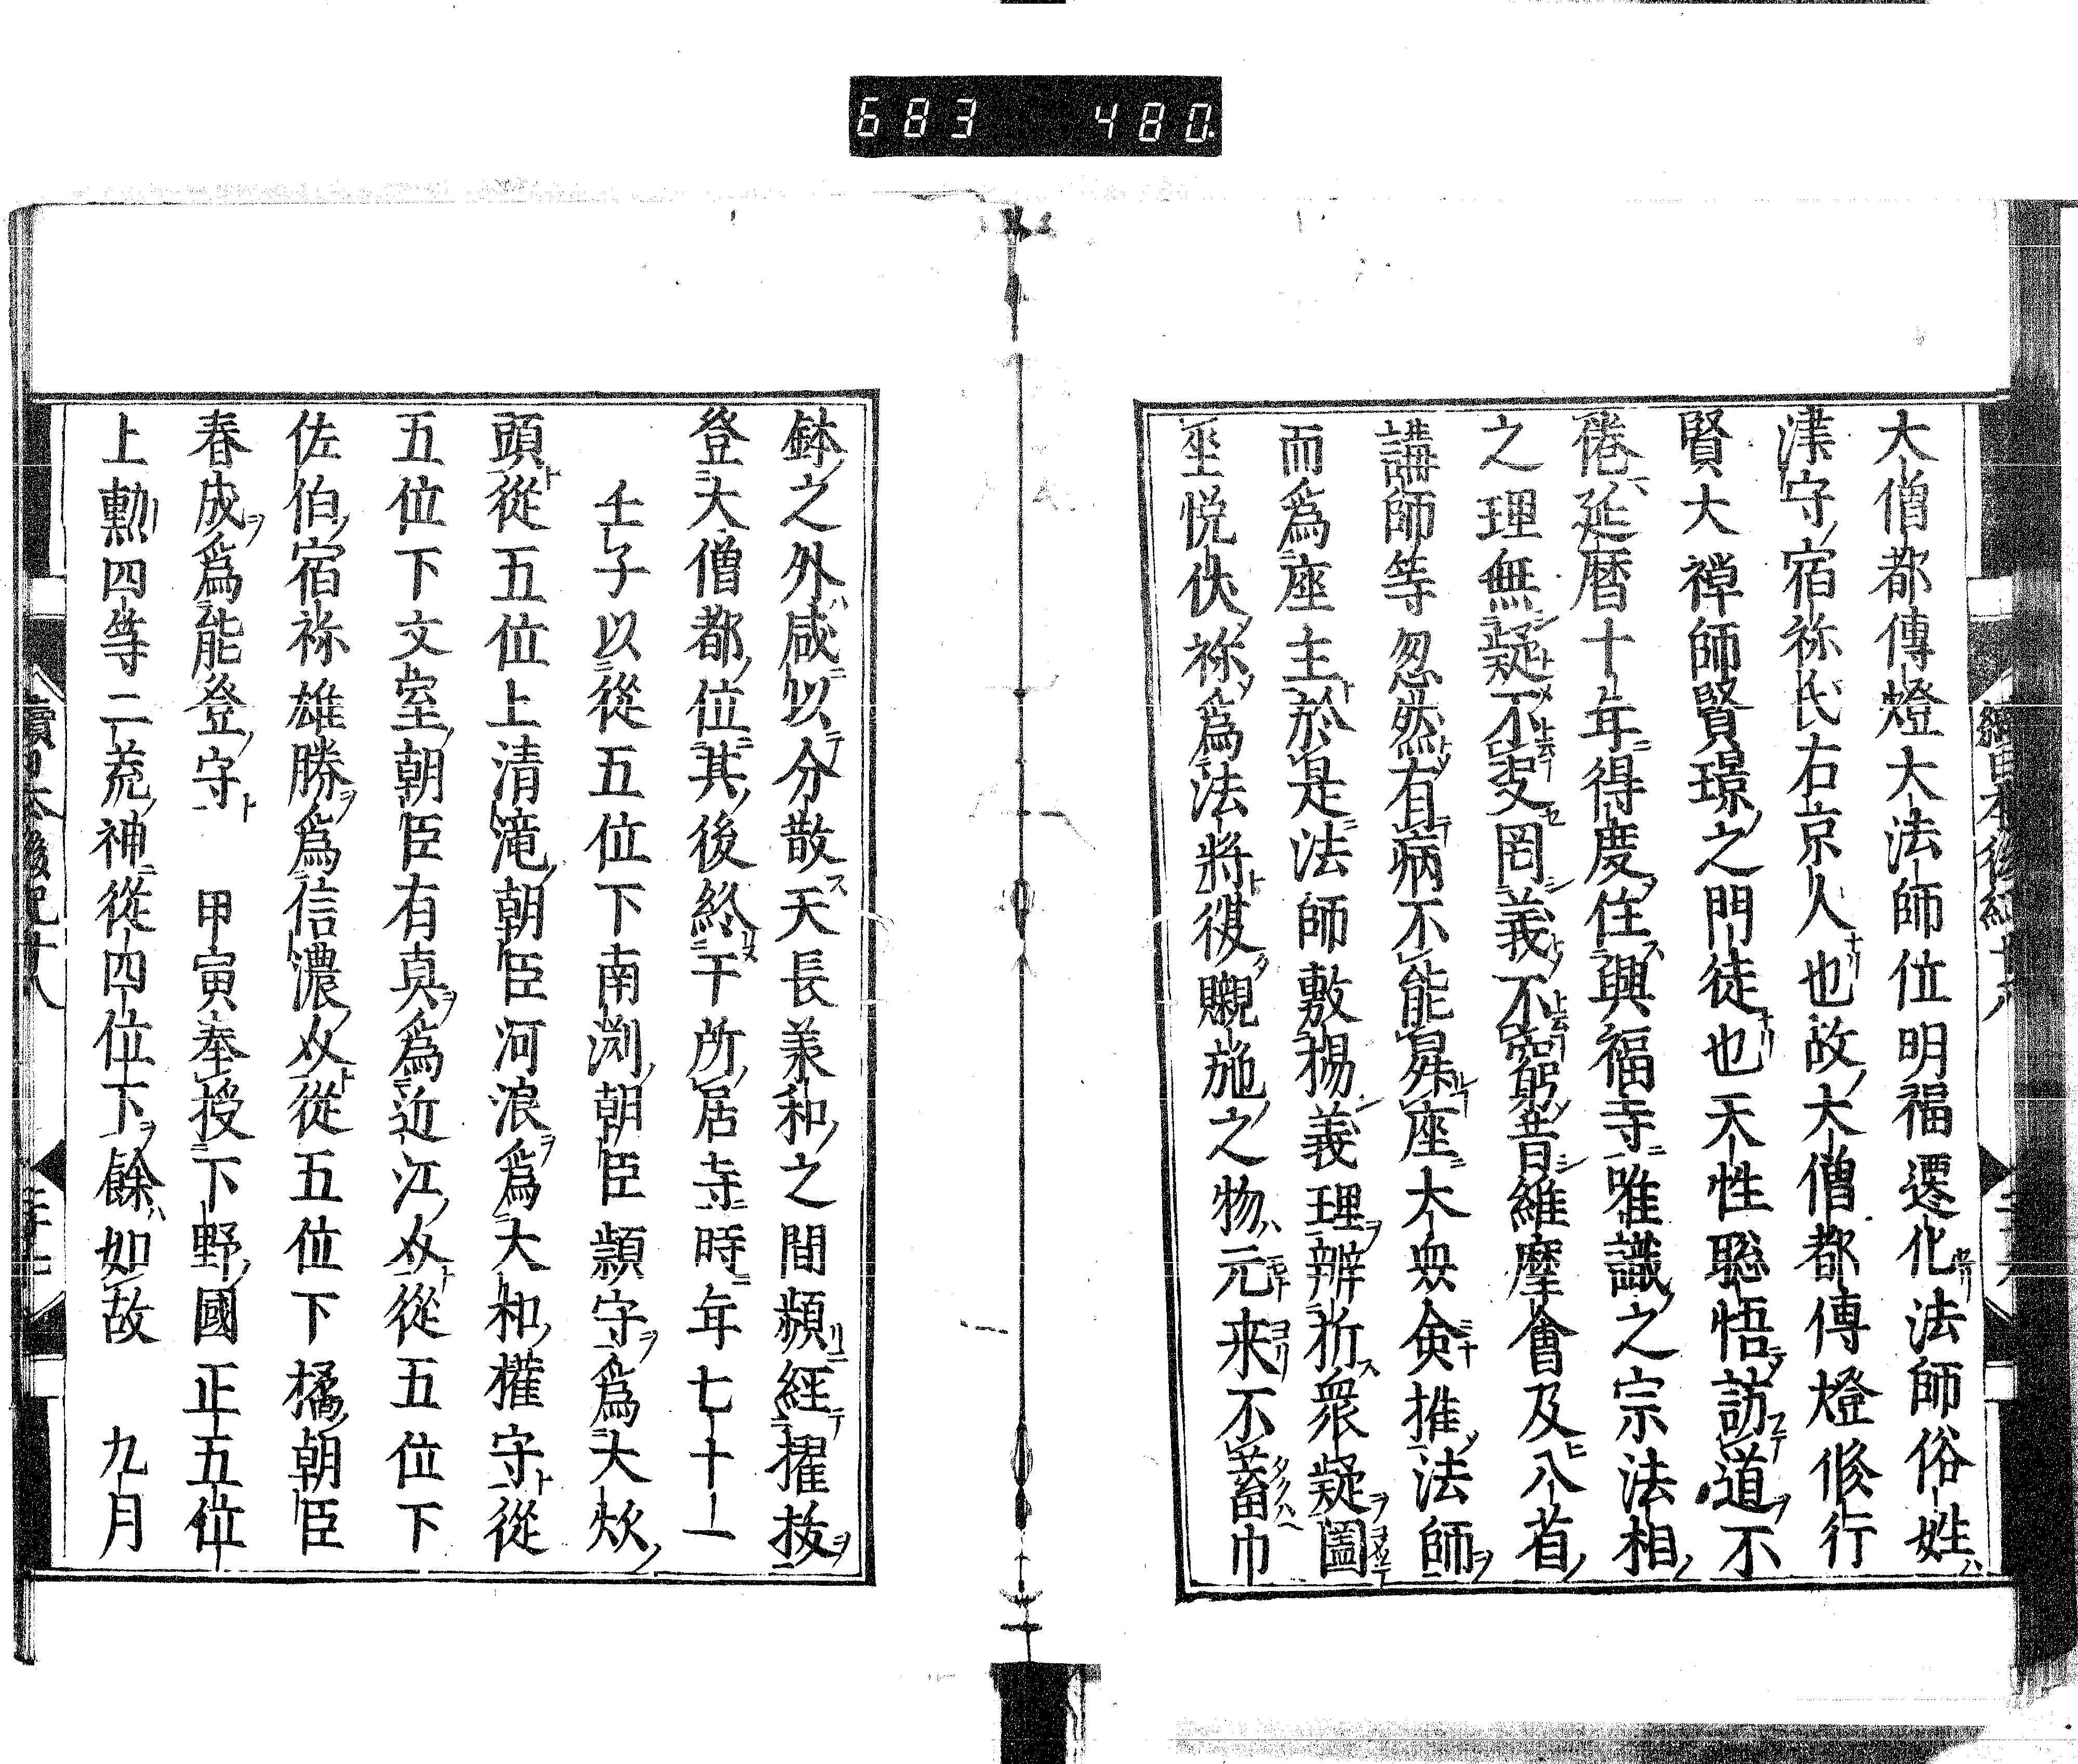 683 480
大僧都傳燈大法師位明福遷化法師俗姓
津守宿祢氏右京人也故大僧都傳燈修行
賢大禅師賢璟之門徒也天性聡悟訪道不
倦延暦十年得度住興福寺唯識之宗法相
之理無疑不叓罔義不窮昔維摩會及八省
講師等忽然有病不能昇座大衆僉推法師
而爲座主於是法師敷揚義理辨析衆疑闔
座悦伏祢爲法将復䞋施之物元来不蓄巾
鉢之外咸以分散天長承和之間頻經擢抜
登大僧都位其後終于所居寺時年七十一
壬子以從五位下南渕朝臣頴守爲大炊
頭從五位上清滝朝臣河浪爲大和權守從
五位下文室朝臣有真爲近江介從五位下
佐伯宿祢雄勝爲信濃介從五位下橘朝臣
春成爲能登守 甲寅奉授下野國正五位
上勲四等二荒神從四位下餘如故 九月